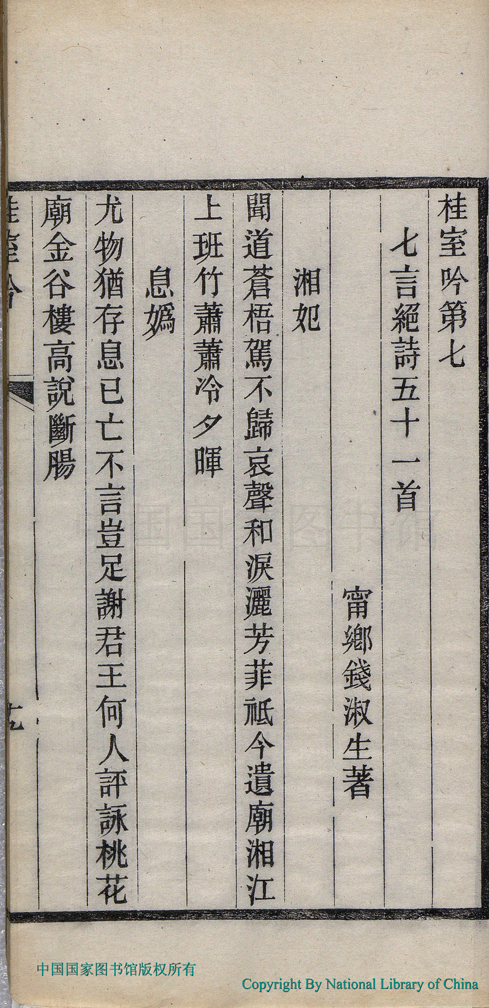 桂室吟第七
七言絕詩五十一首
甯鄉錢淑生著
湘妃
聞道蒼梧駕不歸哀聲和淚灑芳菲祗今遺廟湘江
上班竹蕭蕭冷夕暉
息嬀
尤物猶存息已亡不言豈足謝君王何人評詠桃花
廟金谷樓高說斷腸
桂室吟
中国国家图书馆版权所有
Copyright By National Library of China